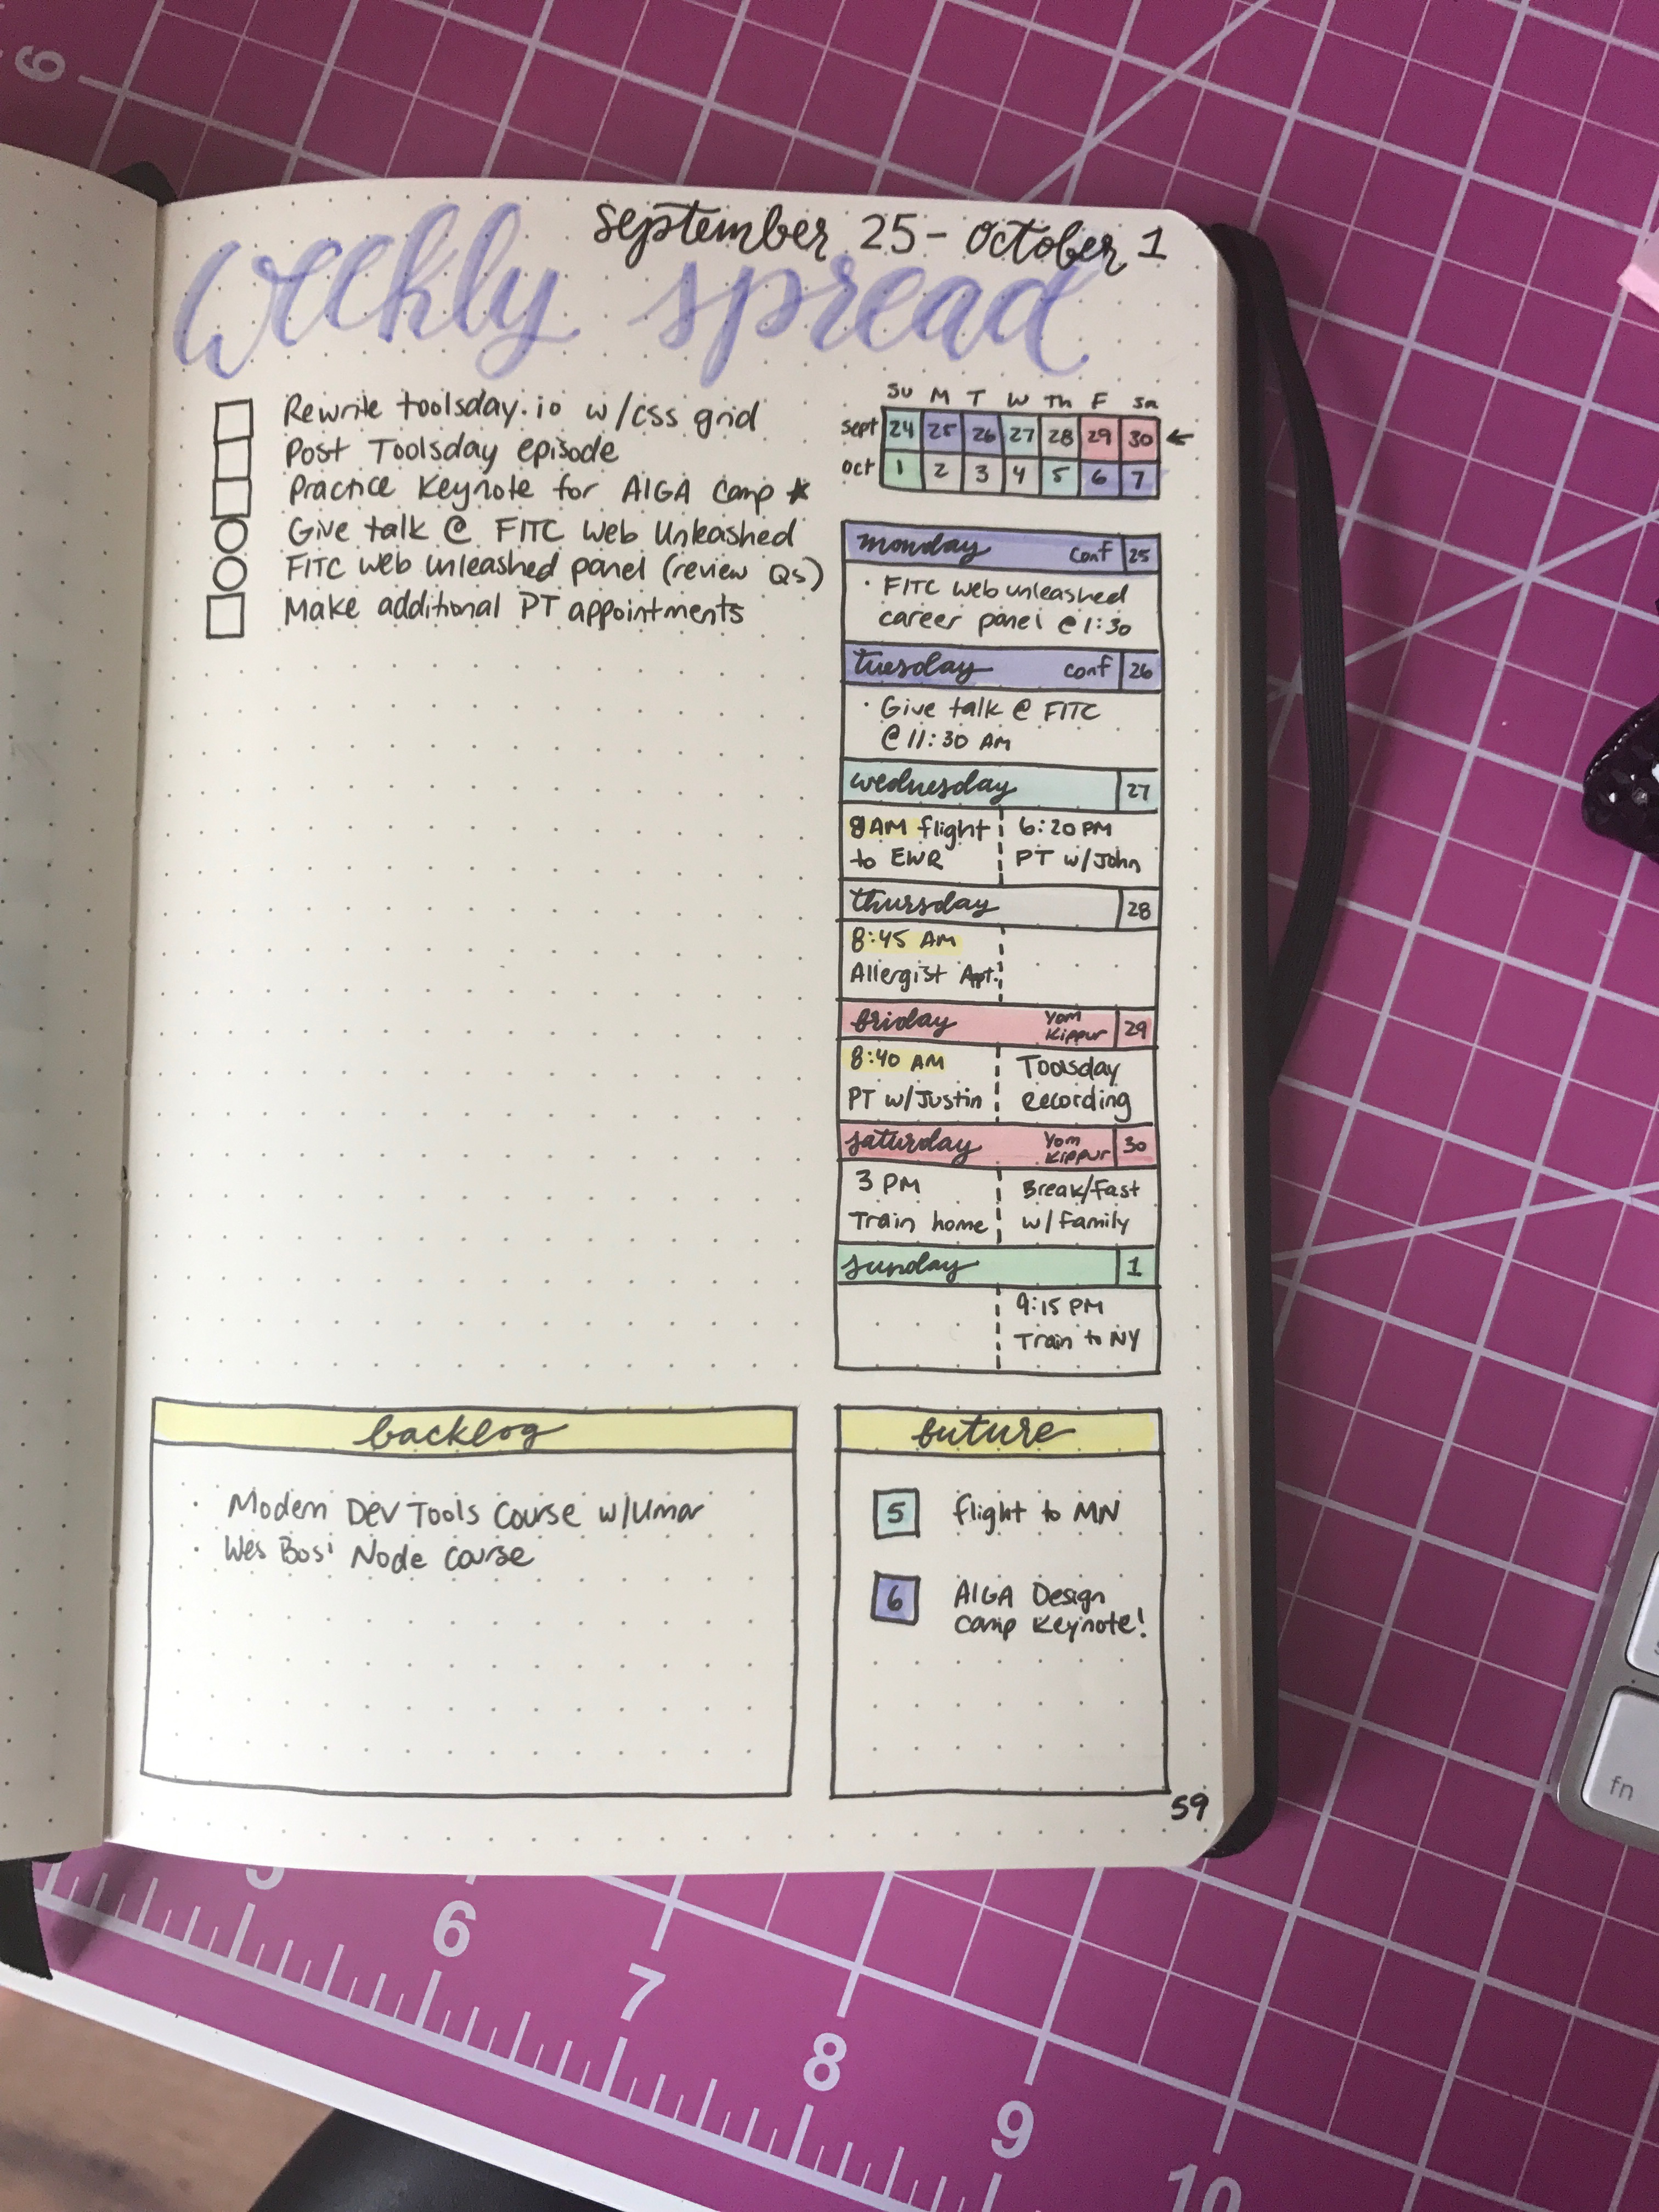 september 25 - october 1
weekly spread
Rewrite toolsday.io w/css grid
Post Toolsday episode
Practice Keynote for AIGA Camp
Give talk @ FITC Web Unleashed
FITC web unleashed panel (review Qs)
Make additional PT appointments
Su M T W Th F Sa
sept 24 25 26 27 28 29 30
oct 1 2 3 4 5 6 7
monday conf 25
· FITC web unleashed
career panel @ 1:30
tuesday conf 26
· Give talk @ FITC
@ 11:30 AM
wednesday 27
8AM flight
to EWR
6:20 PM
PT w/John
thursday 28
8:45 AM
Allergist Apt.
friday Yom Kippur 29
8:40 AM
PT w/Justin
Toolsday
Recording
saturday Yom Kippur 30
3 PM
Train home
Break/fast
w/ Family
sunday 1
9:15 PM
Train to NY
backlog
· Modern Dev Tools Course w/Umar
· Wes Bos' Node Course
future
5 flight to MN
6 AIGA Design
camp Keynote!
59
6
5
6
7
8
9
10
fn